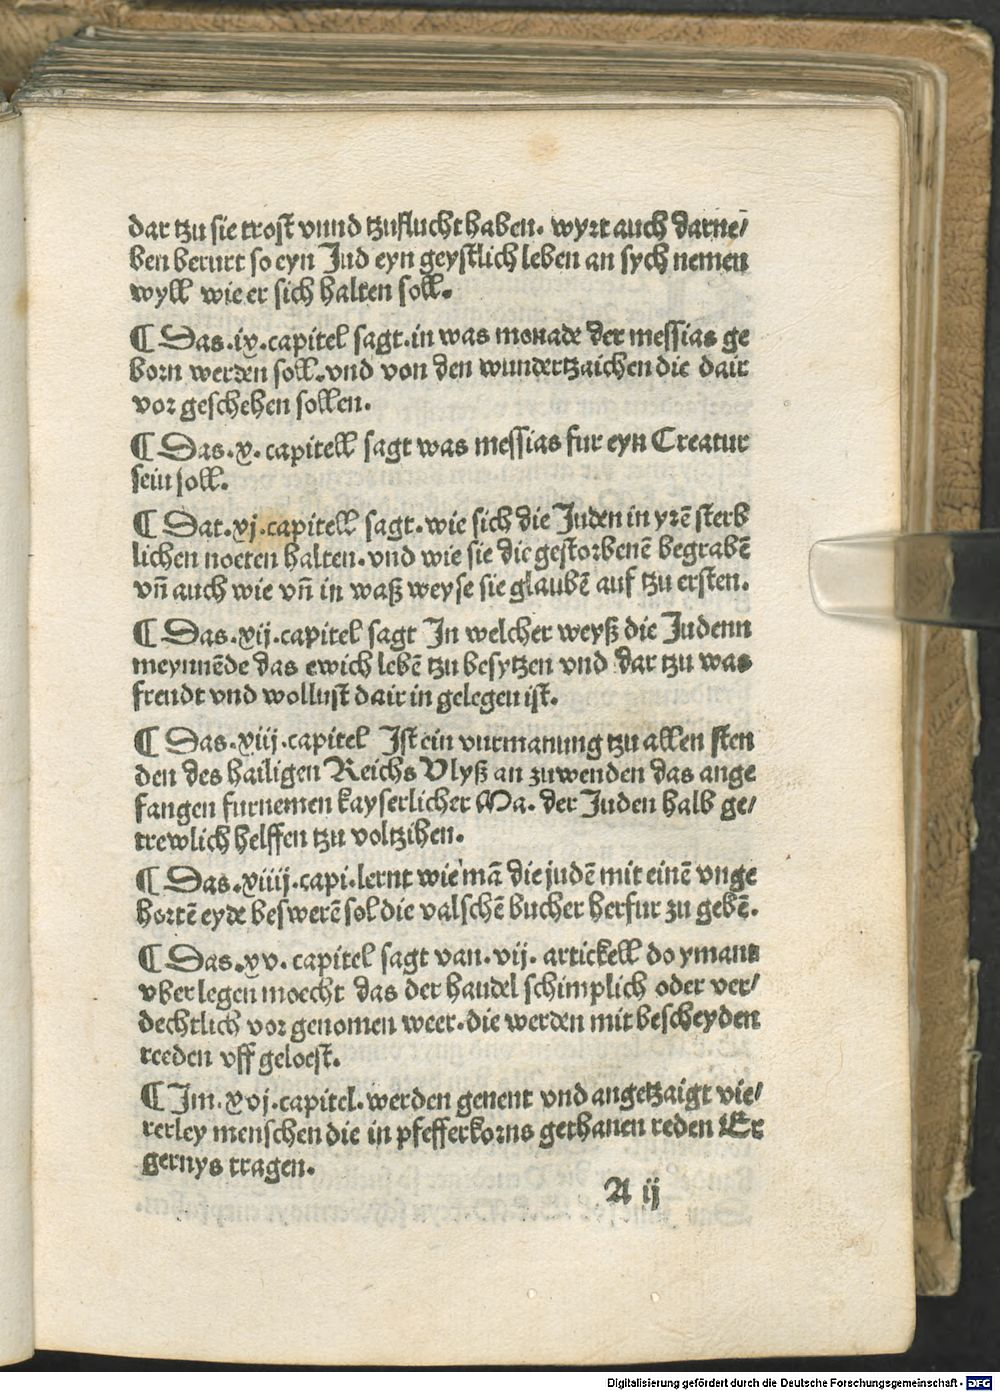 dar tzu sie trost vnnd tzuflucht haben. wyrt auch darne/
ben berurt so eyn Jud eyn geystlich leben an sych nemen
wyll wie er sich halten soll.
¶ Das .ix. capitel sagt. in was monade der messias ge
born werden soll. vnd von den wundertzaichen die dair
vor geschehen sollen.
¶ Das .x. capitell sagt was messias fur eyn Creatur
sein soll.
¶ Dat .xj. capitell sagt. wie sich die Juden in yrē sterb
lichen noeten halten. vnd wie sie die gestorbenē begrabē
vn̄ auch wie vn̄ in waß weyse sie glaubē auf tzu ersten.
¶ Das .xij. capitel sagt In welcher weyß die Judenn
meynnēde das ewich lebē tzu besytzen vnd dar tzu was
freudt vnd wollust dair in gelegen ist.
¶ Das .xiij. capitel Ist ein vurmanung tzu allen sten
den des hailigen Reichs Vlyß an zuwenden das ange
fangen furnemen kayserlicher Ma. der Juden halb ge/
trewlich helffen tzu voltzihen.
¶ Das .xiiij. capi. lernt wie mā die judē mit einē vnge
hortē eyde beswerē sol die valschē bucher herfur zu gebē.
¶ Das .xv. capitel sagt van .vij. artickell do ymans
vber legen moecht das der handel schimplich oder ver/
dechtlich vor genomen weer. die werden mit bescheyden
reeden vff geloest.
¶ Im .xvj. capitel. werden genent vnd angetzaigt vie/
rerley menschen die in pfefferkorns gethanen reden Er
gernys tragen.
A ij
Digitalisierung gefördert durch die Deutsche Forschungsgemeinschaft - DFG